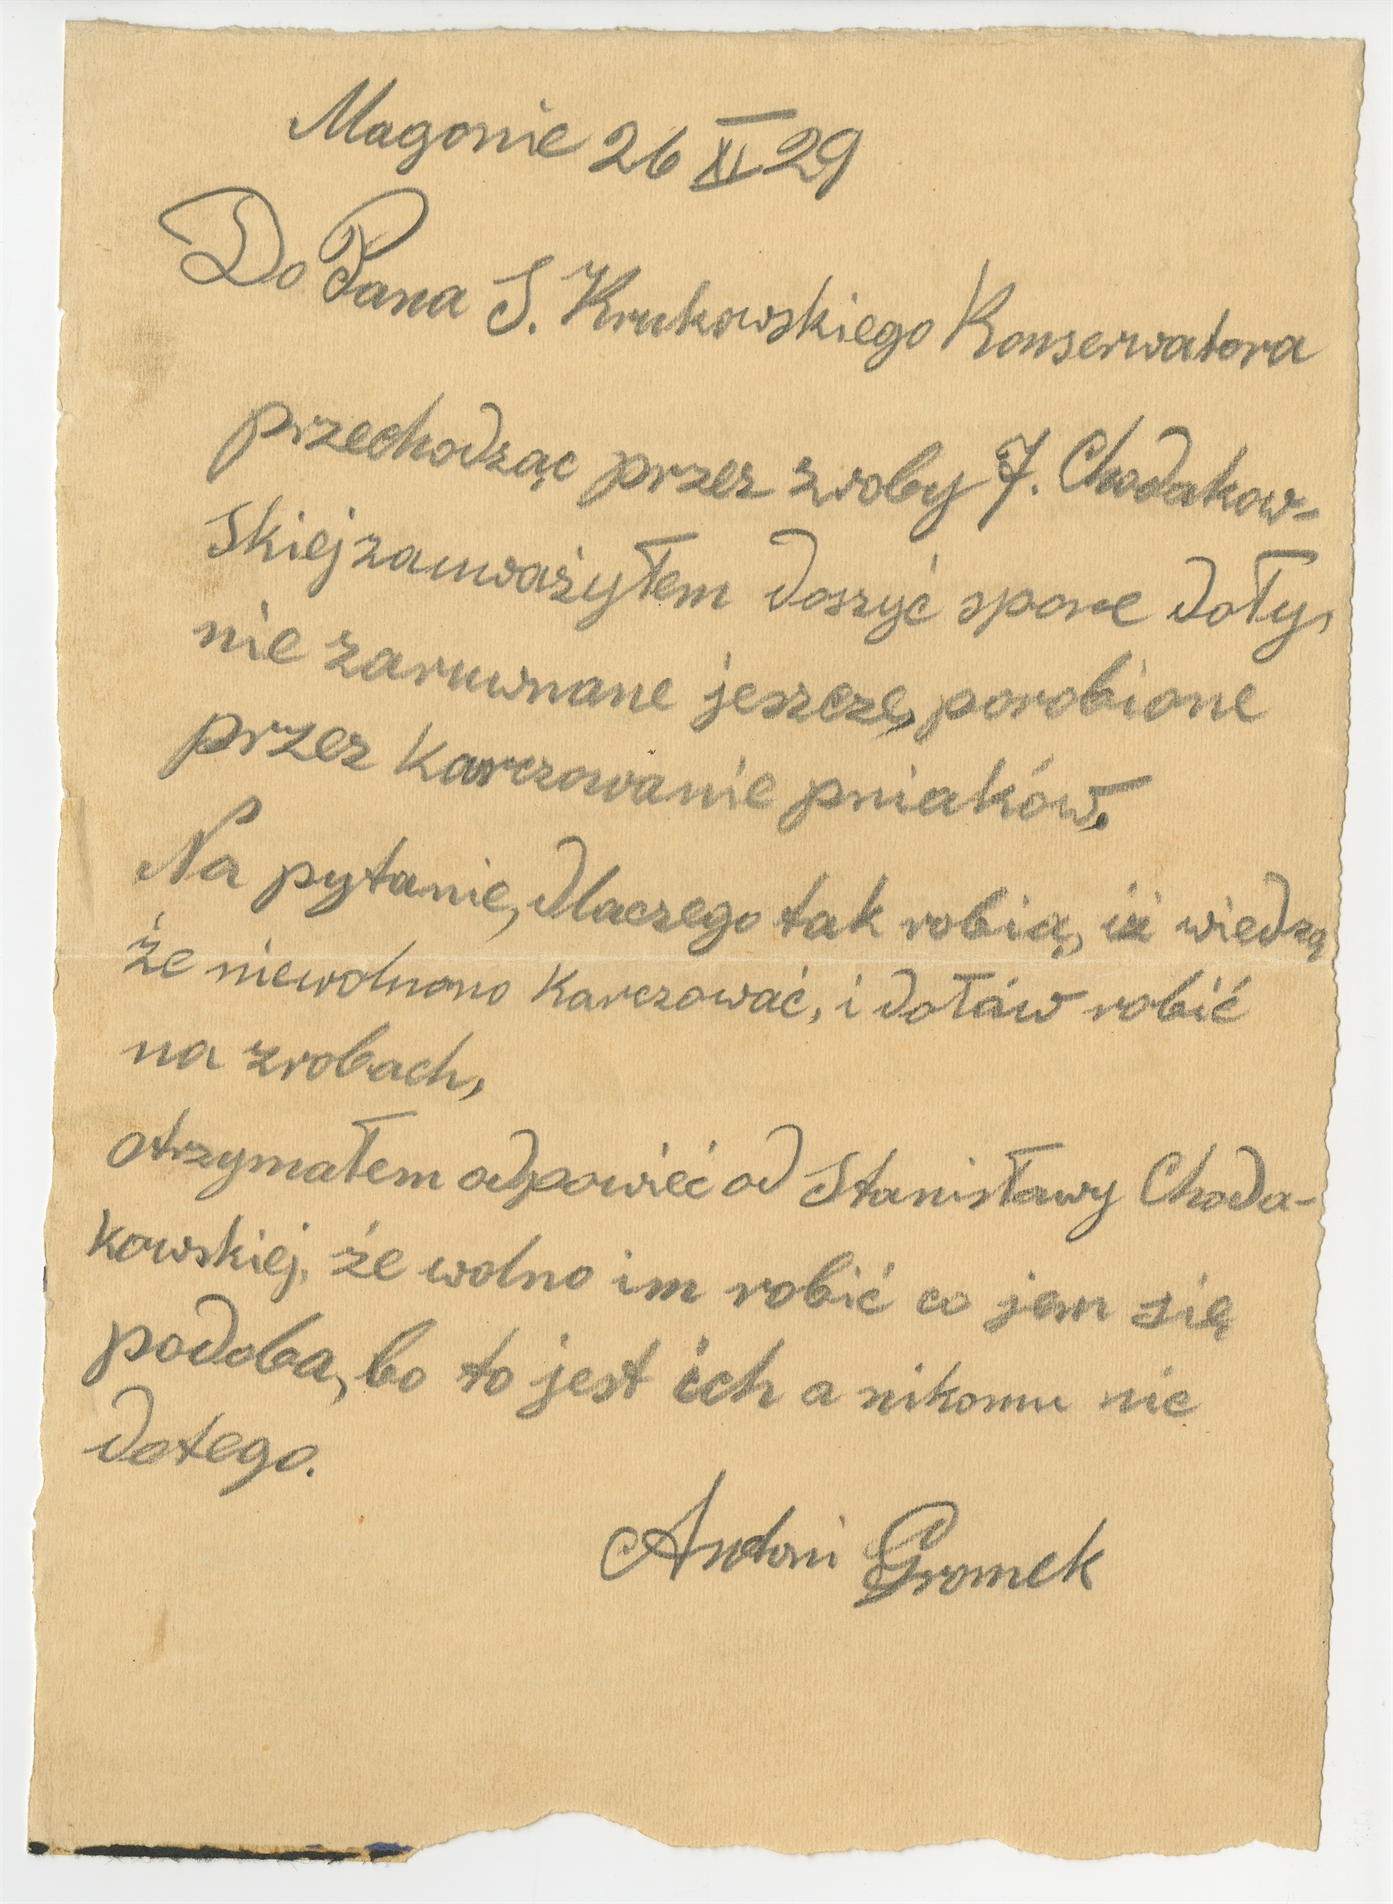 Magonie 26 XI 29
Do Pana S. Krukowskiego Konserwatora
przechodząc przez zroby J. Chodakow-
skiej zauważyłem doszyć spore doły,
nie zaruwnane jeszcze, porobione
przez karczowanie pniaków.
Na pytanie, dlaczego tak robią, iż wiedzą
że niewolnono karczować, i dołów robić
na zrobach,
otrzymałem odpowieć od Stanisławy Choda-
kowskiej, że wolno im robić co jem się
podoba, bo to jest ich a nikomu nic
dotego.
Antoni Gromek